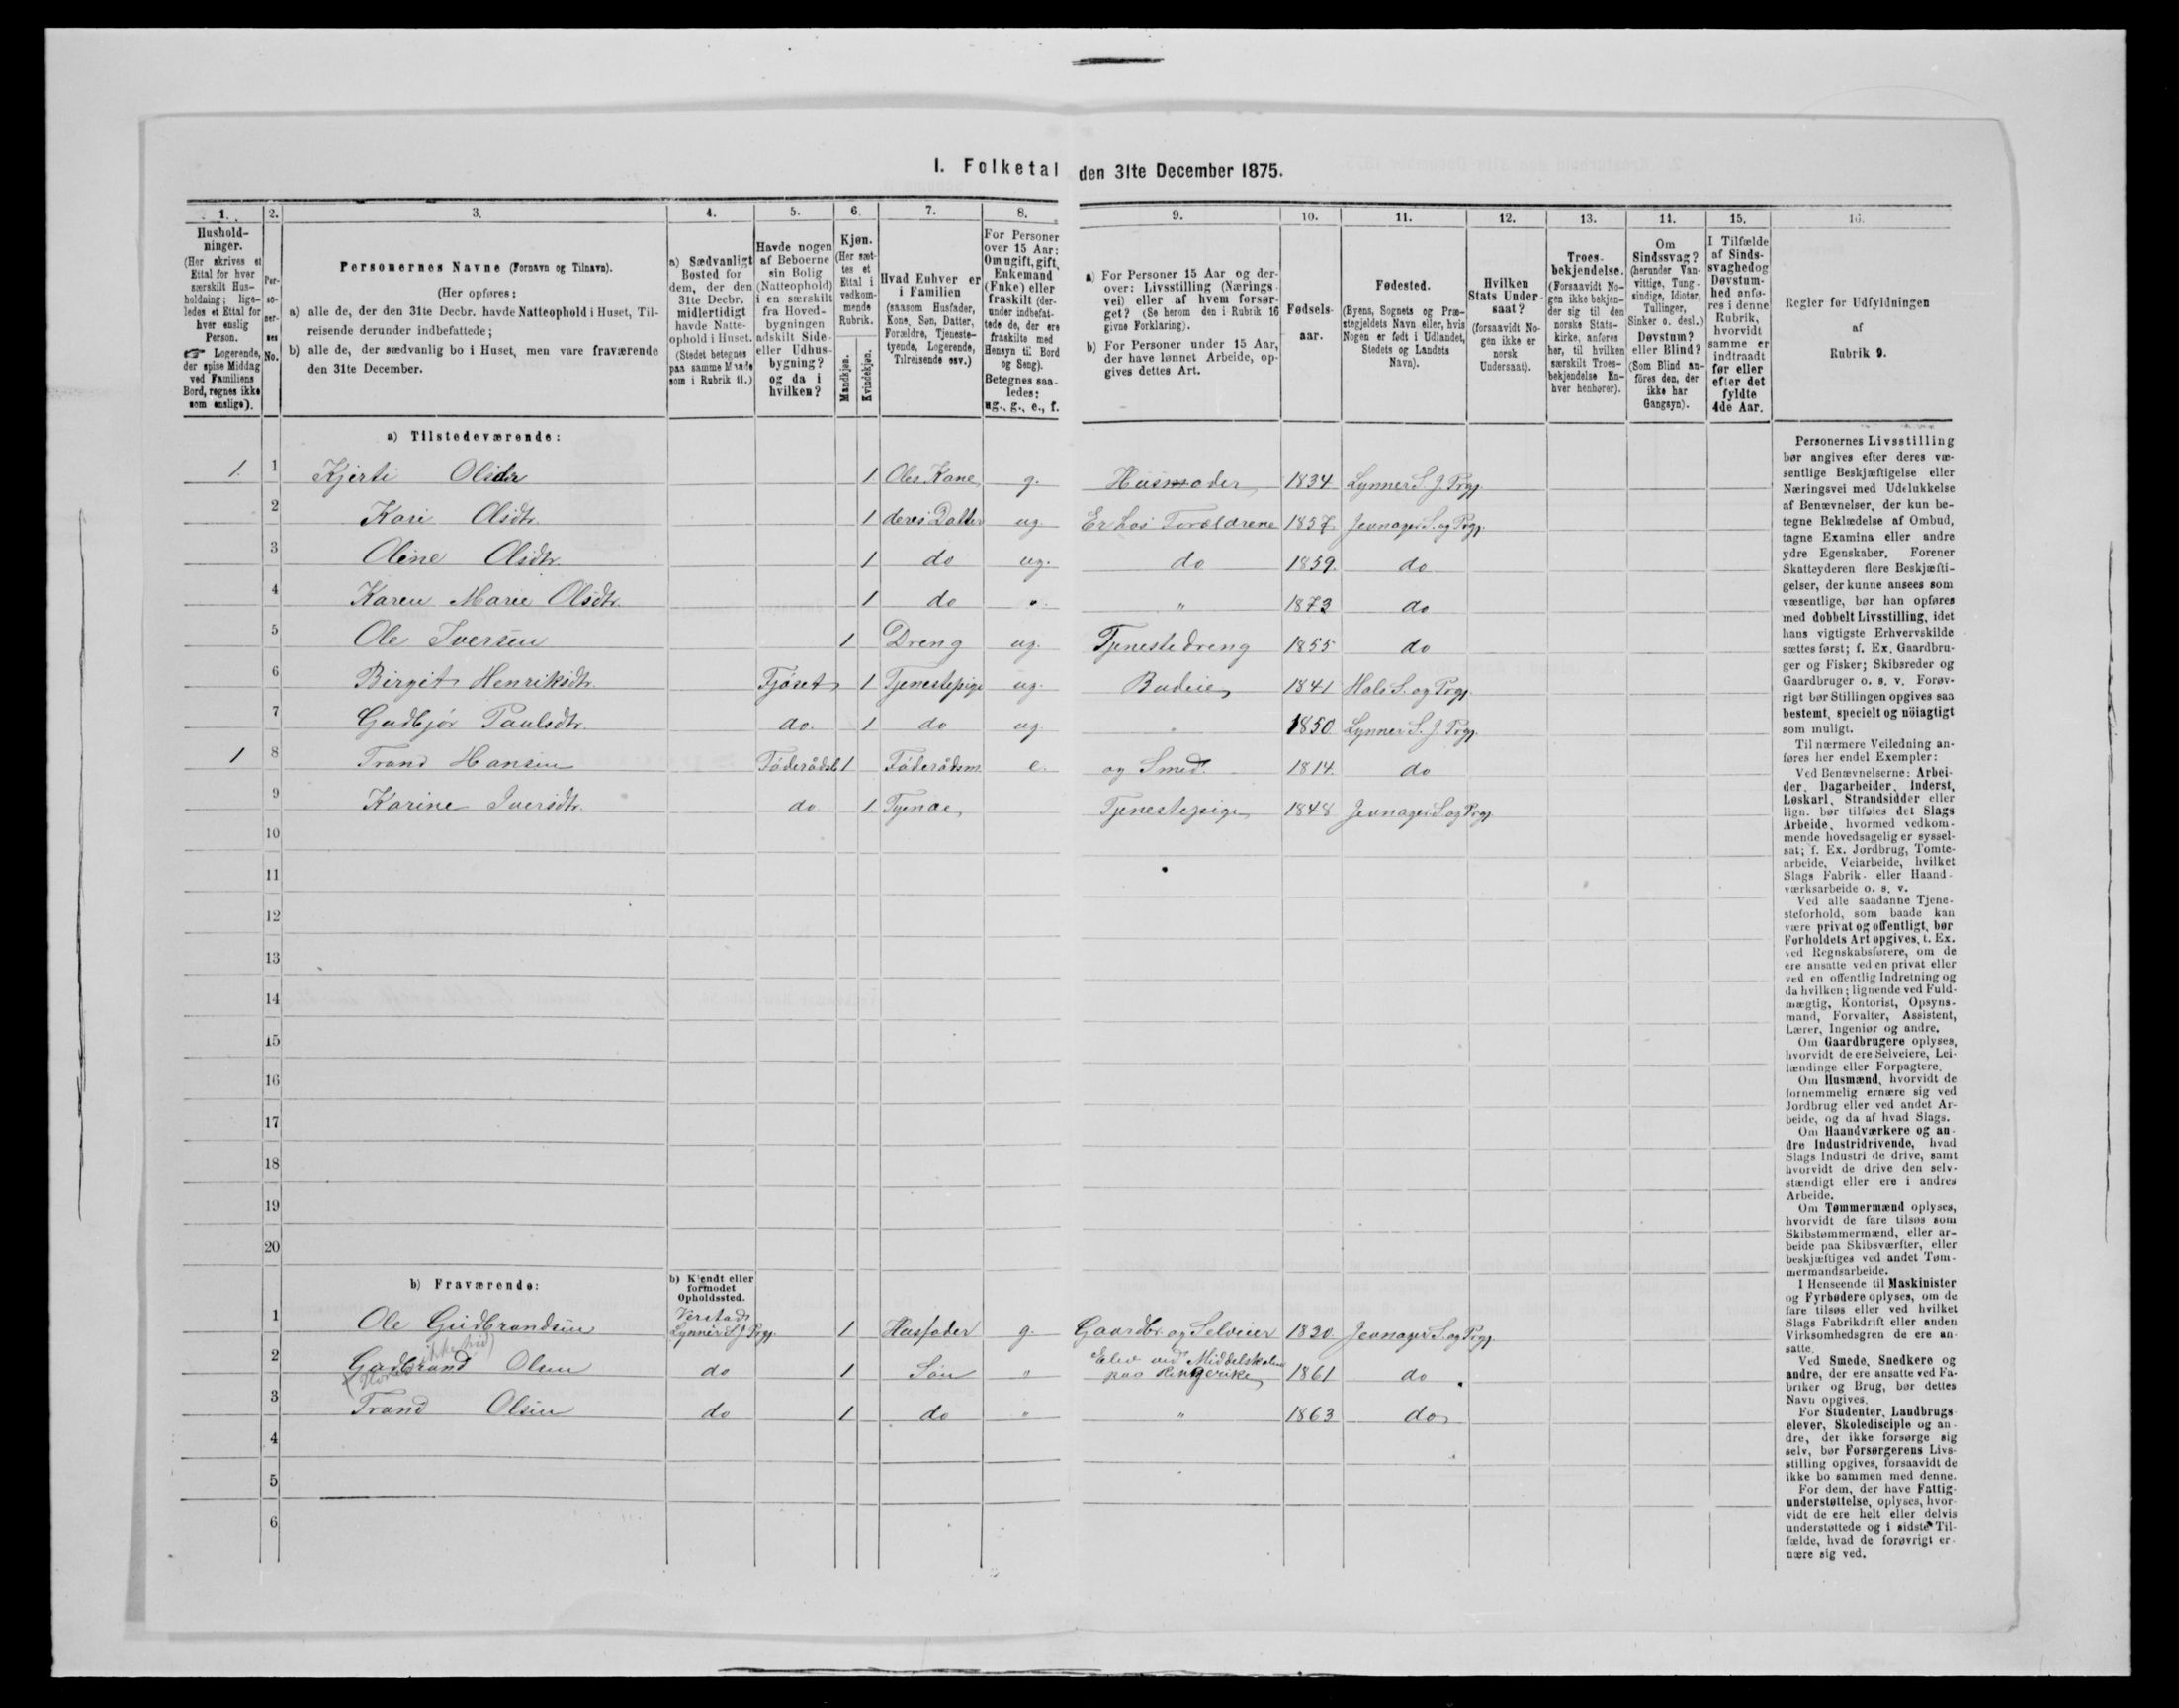 I. Folketal den 31te December 1875.
1. 2. 3. 4. 5. 6. 7. 8. 9. 10. 11. 12. 13. 14. 15. 16.
Hushold-
ninger.
(Her skrives et
Ettal for hver
særskilt Hus-
holdning; lige-
ledes et Ettal for
hver enslig
Person.
☞ Logerende,
der spise Middag
ved Familiens
Bord, regnes ikke
som enslige).
Per-
so-
ner-
nes
No.
Personernes Navne (Fornavn og Tilnavn).
(Her opføres:
a) alle de, der den 31te Decbr. havde Natteophold i Huset, Til-
reisende derunder indbefattede;
b) alle de, der sædvanlig bo i Huset, men vare fraværende
den 31te December.
a) Sædvanligt
Bosted for
dem, der den
31te Decbr.
midlertidigt
havde Natte-
ophold i Huset.
(Stedet betegnes
paa samme Maade
som i Rubrik 11.)
Havde nogen
af Beboerne
sin Bolig
(Natteophold)
i en særskilt
fra Hoved-
bygningen
adskilt Side-
eller Udhus-
bygning?
og da i
hvilken?
Kjøn.
(Her sæt-
tes et
Ettal i
vedkom-
mende
Rubrik.
Mandkjøn.
Kvindekjøn.
Hvad Enhver er
i Familien
(saasom Husfader,
Kone, Søn, Datter,
Forældre, Tjeneste-
tyende, Logerende,
Tilreisende osv.)
For Personer
over 15 Aar:
Om ugift, gift,
Enkemand
(Enke) eller
fraskilt (der-
under indbefat-
tede de, der ere
fraskilte med
Hensyn til Bord
og Seng).
Betegnes saa-
ledes:
ug., g., e., f.
a) For Personer 15 Aar og der-
over: Livsstilling (Nærings-
vei) eller af hvem forsør-
get? (Se herom den i Rubrik 16
givne Forklaring).
b) For Personer under 15 Aar,
der have lønnet Arbeide, op-
gives dettes Art.
Fødsels-
aar.
Fødested.
(Byens, Sognets og Præ-
stegjeldets Navn eller, hvis
Nogen er født i Udlandet,
Stedets og Landets
Navn).
Hvilken
Stats Under-
saat?
(forsaavidt No-
gen ikke er
norsk
Undersaat).
Troes-
bekjendelse.
(Forsaavidt No-
gen ikke bekjen-
der sig til den
norske Stats-
kirke, anføres
her, til hvilken
særskilt Troes-
bekjendelse En-
hver henhører).
Om
Sindssvag?
(herunder Van-
vittige, Tung-
sindige, Idioter,
Tullinger,
Sinker o. desl.)
Døvstum?
eller Blind?
(Som Blind an-
föres den, der
ikke har
Gangsyn).
I Tilfælde
af Sinds-
svaghed og
Døvstum-
hed anfø-
res i denne
Rubrik,
hvorvidt
samme er
indtraadt
før eller
efter det
fyldte
4de Aar.
Regler for Udfyldningen
af
Rubrik 9.
a) Tilstedeværende:
1. 1 Kjersti Olsdtr 1 Oles Kone g. Husmoder 1834 Lynner S. J. Prgj.
2 Kari Olsdtr. 1 deres Datter ug. Er hos Forældrene 1857 Jevnager S. og Prgj.
3 Oline Olsdtr. 1 do ug. do 1859. do
4 Karen Marie Olsdtr. 1 do " " 1873 do
5 Ole Iversen 1 Dreng ug. Tjenestedreng 1855 do
6 Birgit Henriksdtr. Fjöset 1 Tjenestepige ug. Budeie 1841 Hals S. og Prgj.
7 Gudbjör Paulsdtr. do. 1 do ug. " 1850 Lynner S. J. Prgj.
1 8 Trand Hansen Föderådsb 1 Föderådsm. e. og Smed. 1814. do
9 Karine Iversdtr. do. 1. Tyende Tjenestepige 1848 Jevnager S. og Prgj.
10
11
12
13
14
15
16
17
18
19
20
b) Fraværende:
b) Kjendt eller
formodet
Opholdssted.
1 Ole Gudbrandsen Lynner S. J. Prgj. 1 Husfader g. Gaardbr. og Selveier 1820 Jevnager S. og Prgj.
2 Gudbrand Olsen do 1 Sön " Elev ved Middelskolen
paa Ringerike 1861 do
3 Trand Olsen do 1 do " " 1863 do
4
5
6
Personernes Livsstilling
bør angives efter deres væ-
sentlige Beskjæftigelse eller
Næringsvei med Udelukkelse
af Benævnelser, der kun be-
tegne Beklædelse af Ombud,
tagne Examina eller andre
ydre Egenskaber. Forener
Skatteyderen flere Beskjæfti-
gelser, der kunne ansees som
væsentlige, bør han opføres
med dobbelt Livsstilling, idet
hans vigtigste Erhvervskilde
sættes først; f. Ex. Gaardbru-
ger og Fisker; Skibsreder og
Gaardbruger o. s. v. Forøv-
rigt bør Stillingen opgives saa
bestemt, specielt og nöiagtigt
som muligt.
Til nærmere Veiledning an-
føres her endel Exempler:
Ved Benævnelserne: Arbei-
der, Dagarbeider, Inderst,
Løskarl, Strandsidder eller
lign. bør tilføies det Slags
Arbeide, hvormed vedkom-
mende hovedsagelig er syssel-
sat; f. Ex. Jordbrug, Tomte-
arbeide, Veiarbeide, hvilket
Slags Fabrik- eller Haand-
værksarbeide o. s. v.
Ved alle saadanne Tjene-
steforhold, som baade kan
være privat og offentligt, bør
Forholdets Art opgives, t. Ex.
ved Regnskabsførere, om de
ere ansatte ved en privat eller
ved en offentlig Indretning og
da hvilken; lignende ved Fuld-
mægtig, Kontorist, Opsyns-
mand, Forvalter, Assistent,
Lærer, Ingeniør og andre.
Om Gaardbrugere oplyses,
hvorvidt de ere Selveiere, Lei-
lændinge eller Forpagtere.
Om Husmænd, hvorvidt de
fornemmelig ernære sig ved
Jordbrug eller ved andet Ar-
beide, og da af hvad Slags.
Om Haandværkere og an-
dre Industridrivende, hvad
Slags Industri de drive, samt
hvorvidt de drive den selv-
stændigt eller ere i andres
Arbeide.
Om Tømmermænd oplyses,
hvorvidt de fare tilsøs som
Skibstømmermænd, eller ar-
beide paa Skibsværfter, eller
beskjæftiges ved andet Tøm-
mermandsarbeide.
I Henseende til Maskinister
og Fyrbødere oplyses, om de
fare tilsøs eller ved hvilket
Slags Fabrikdrift eller anden
Virksomhedsgren de ere an-
satte.
Ved Smede, Snedkere og
andre, der ere ansatte ved Fa-
briker og Brug, bør dettes
Navn opgives.
For Studenter, Landbrugs-
elever, Skoledisciple og an-
dre, der ikke forsørge sig
selv, bør Forsørgerens Livs-
stilling opgives, forsaavidt de
ikke bo sammen med denne.
For dem, der have Fattig-
understøttelse, oplyses, hvor-
vidt de ere helt eller delvis
understøttede og i sidste Til-
fælde, hvad de forøvrigt er-
nære sig ved.